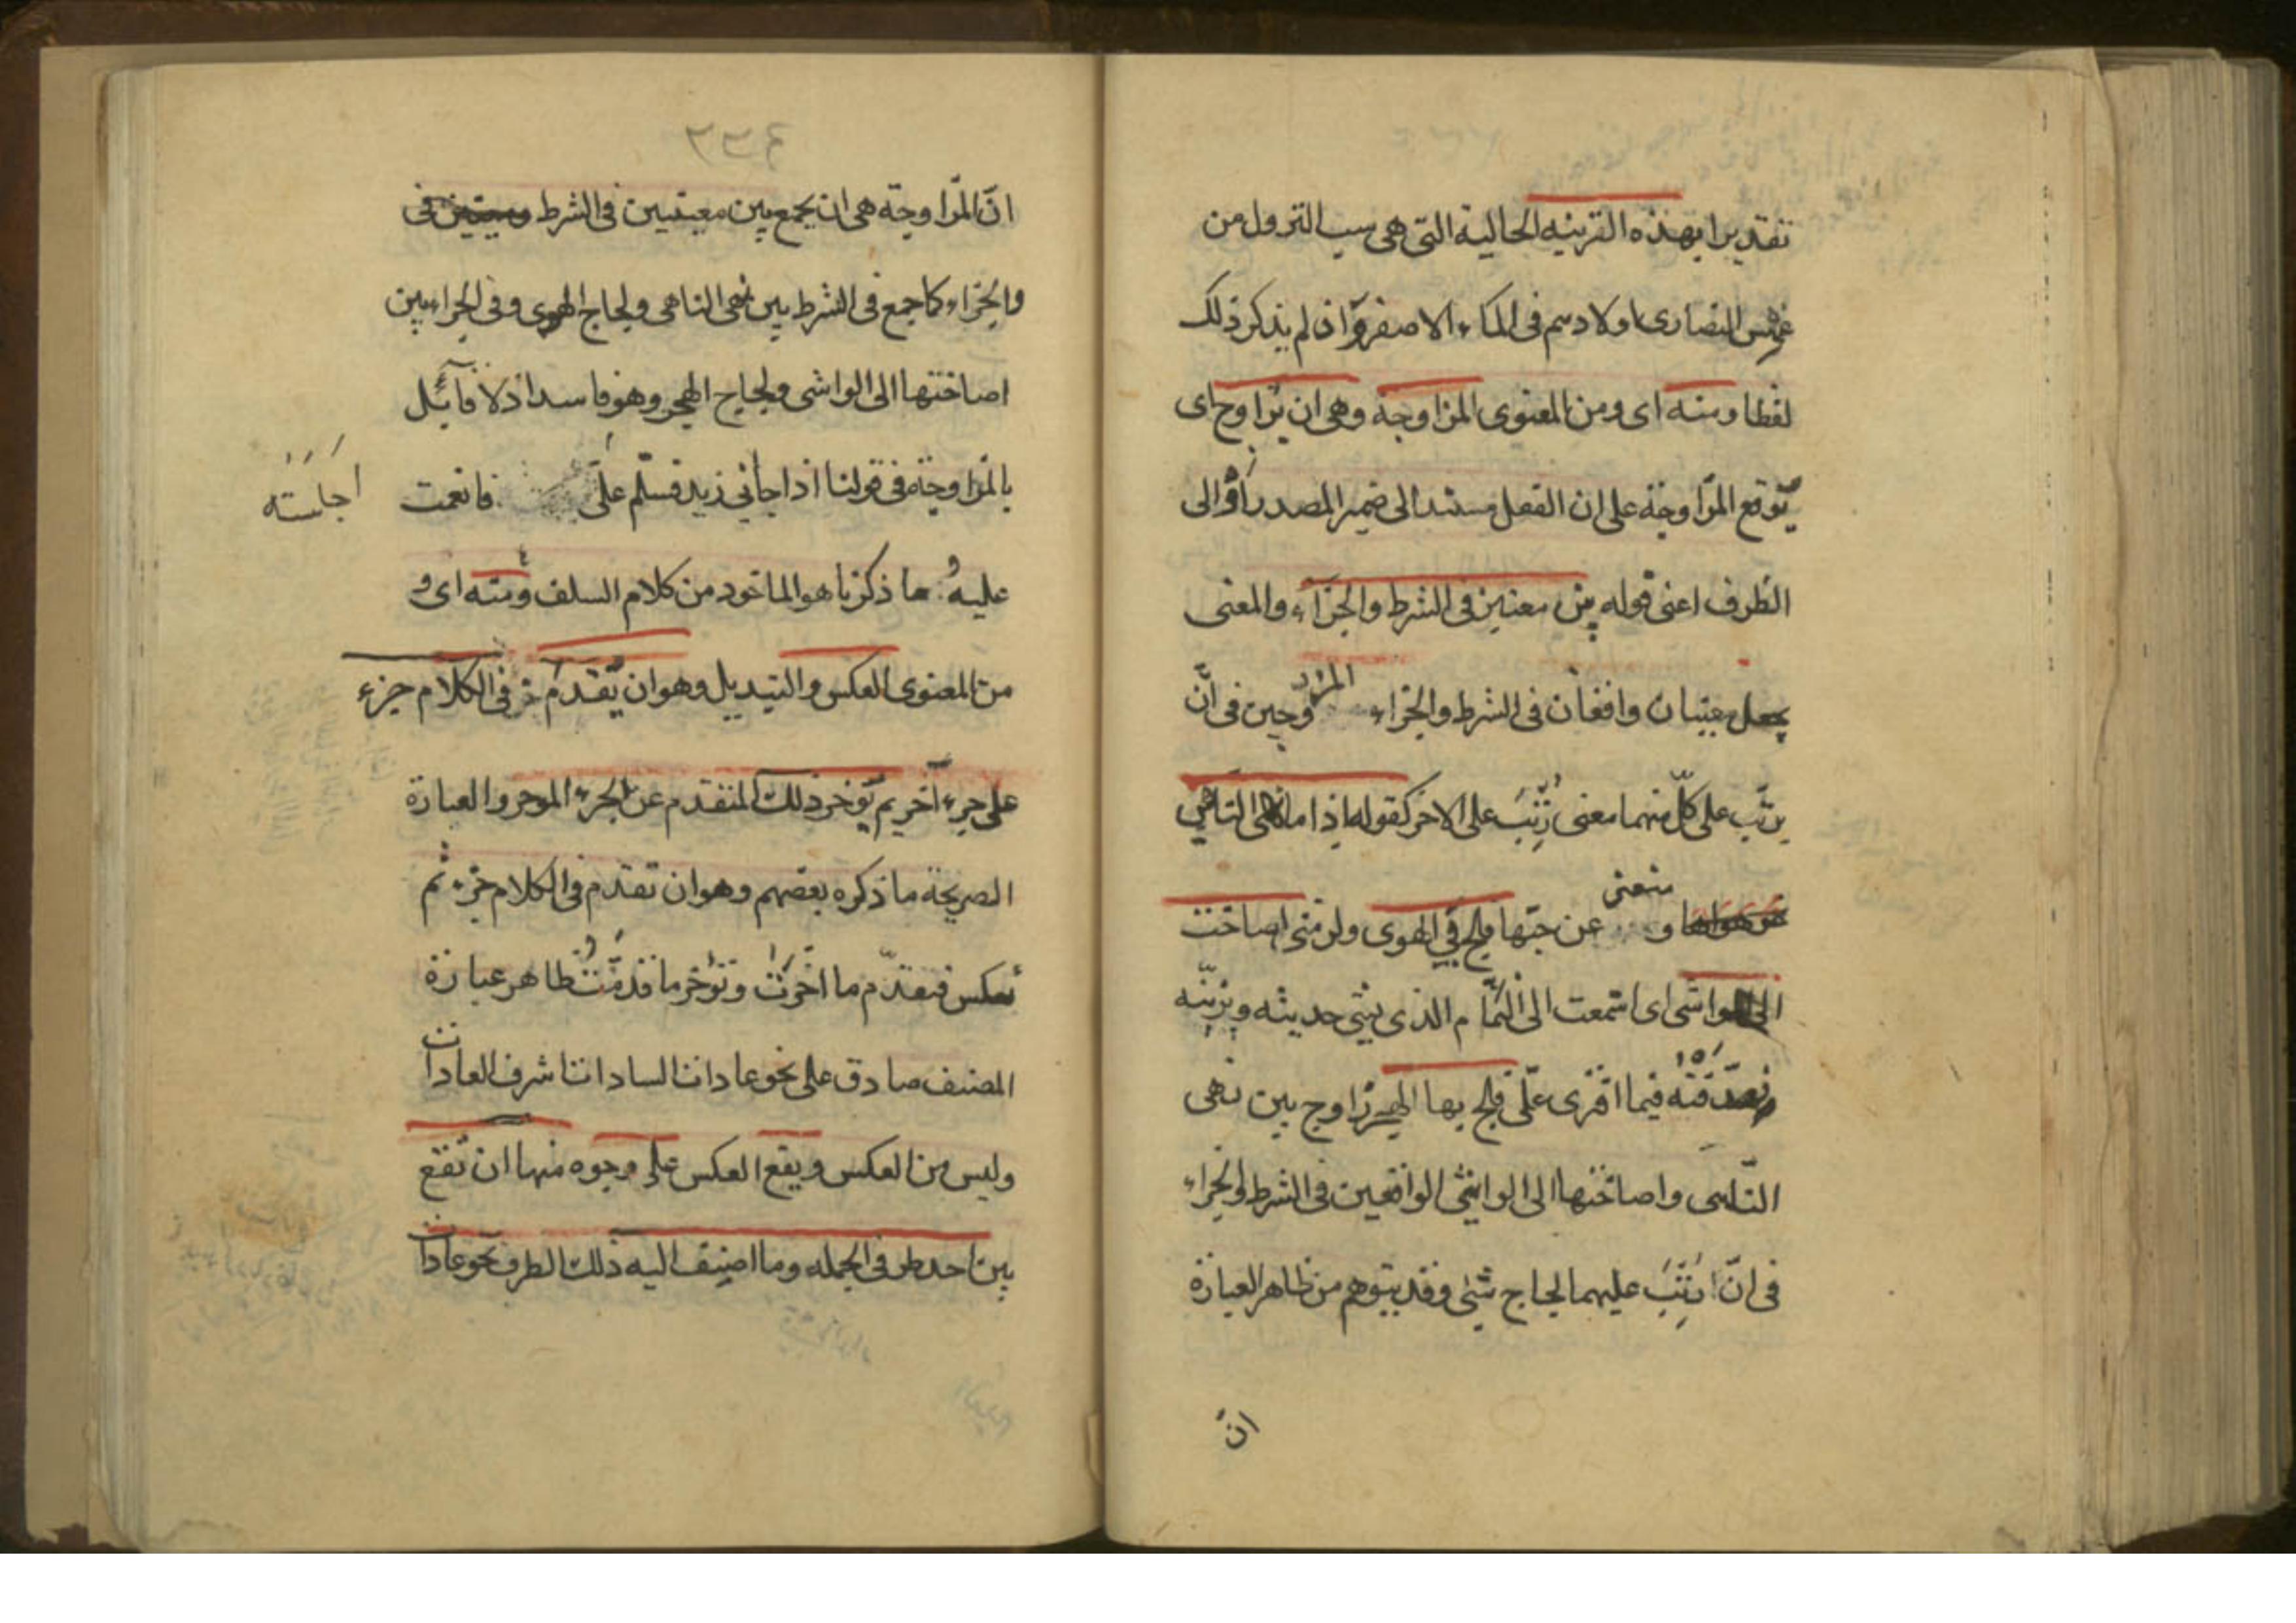 تقديرا بهذه القرينه الحالية التى هى سبب النزول من
غمس النصارى اولادهم فى الماء الاصفر وان لم يذكر ذلك
لفظا ومنه اى ومن المعنوى المزاوجة وهى ان يزاوج اى
يوقع المزاوجة على ان الفعل مسند الى ضمير المصدر او الى
الظرف اعنى قوله بين معنيين فى الشرط والجزاء والمعنى
يجعل معنيان واقعان فى الشرط والجزاء المزدوجين فى ان
يرتّب على كلّ منهما معنى رُتِّبَ على الاخر كقوله اذا ما نهى الناهى
و منعنى عن حبّها فلج بي الهوى ولزمنى اصاخت
الى الواشى اى استمعت الى النمّام الذى يشى حديثه ويزيّنه
وصدّقَتْهُ فيما افترى علّى فلج بها الهجر زاوج بين نهى
النّاهى واصاختها الى الواشى الواقعين فى الشرط والجزاء
فى انّ رُتِّبَ عليهما لجاج شئ وقد يتوهم من ظاهر العبارة
انّ
٣٣٤
انّ المزاوجة هى ان يجمع بين معنيين فى الشرط ومعنيين فى
والجزاء كما جمع فى الشرط بين نهى الناهى ولجاج الهوى وفى الجزاء بين
اصاختها الى الواشى ولجاج الهجر وهو فاسد اذ لا قآئل
بالمزاوجة فى قولنا اذا جاءنى زيد فسلّم علىّ فانعمت
اجلسته
عليه و ما ذكرنا هو الماخود من كلام السلف ومنه اى و
من المعنوى العكس والتبديل وهو ان يُقدَّم فى الكلام جزء
على جزء آخر ثم يؤخر ذلك المتقدم عن الجزء الموخر والعبارة
الصريحة ما ذكره بعضهم وهو ان تقدم فى الكلام جزء ثم
تعكس فتقدّم ما اخّرتَ وتؤخر ما قدّمتَ وظاهر عبارة
المصنف صادق على نحو عادات السادات اشرف العادات
وليس من العكس ويقع العكس على وجوه منها ان تقع
بين احد طرفى الجمله وما اضيف اليه ذلك الطرف نحو عادات